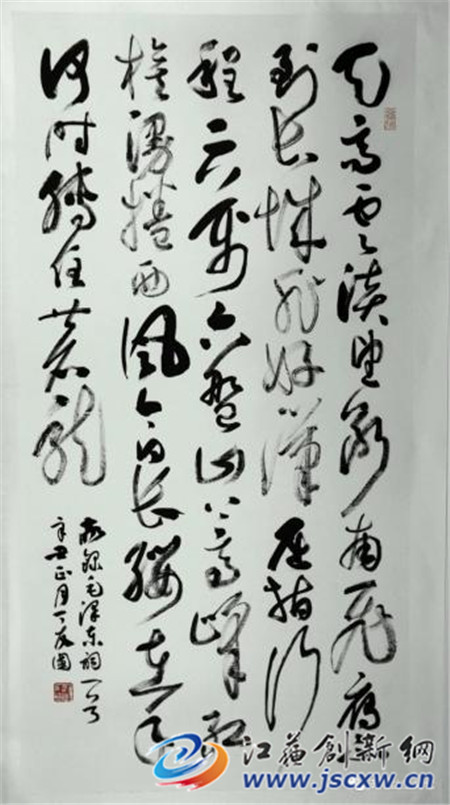 天高雲淡望断南飛雁
到长城非好漢屈指行
程二萬六盤山上高峰红
旗漫捲西風今日长缨在手
何时缚住苍龍
敬録毛泽东词一首
辛丑正月丁友
江苏创新网
www.jscxw.cn